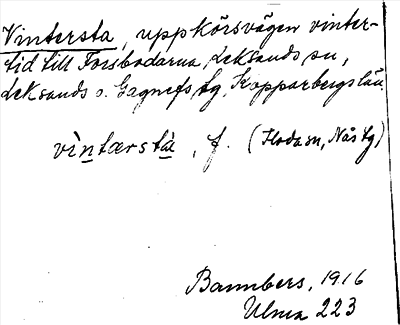 Vintersta, uppkörsvägen vinter-
tid till Forsbodarna, Leksands sn,
Leksands o. Gagnefs tg, Kopparbergs län.
vìntærstà, f. (Floda sn, Nås tg)
Bannbers, 1916
Ulma 223